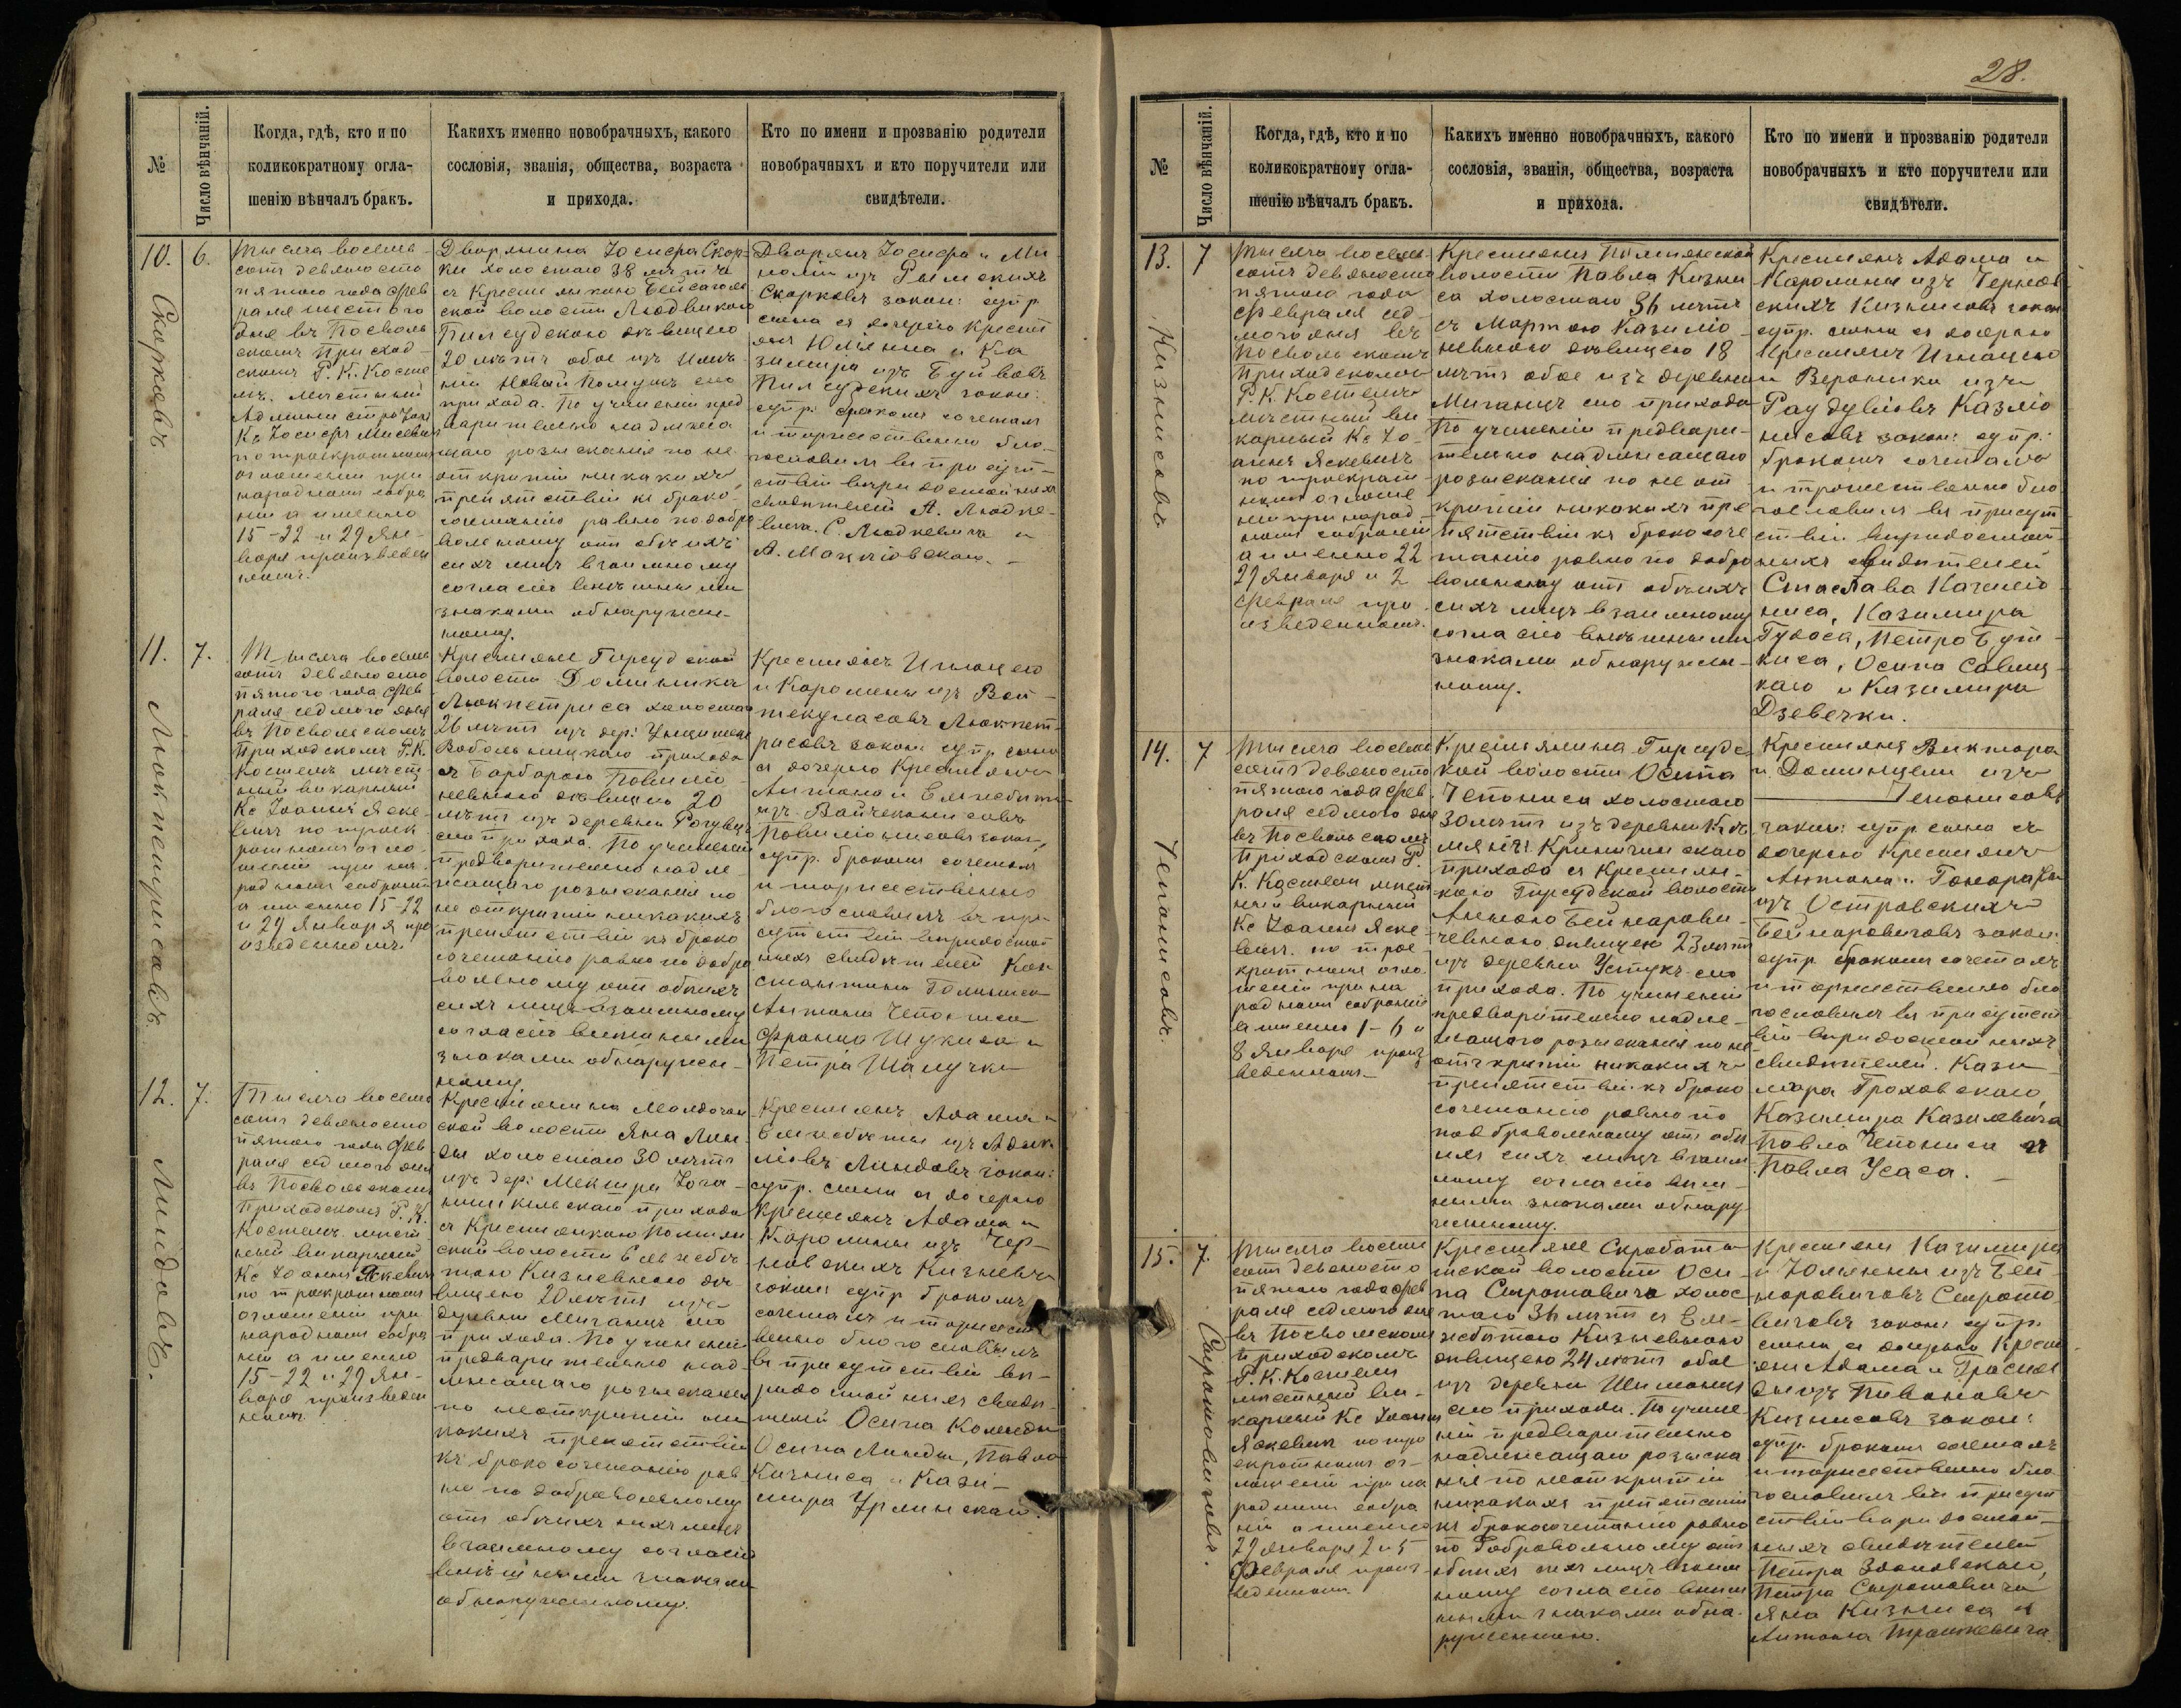 28.
№
Число вѣнчаній.
Когда, гдѣ, кто и по
коликократному огла-
шенію вѣнчалъ бракъ.
Какихъ именно новобрачныхъ, какого
сословія, званія, общества, возраста
и прихода.
Кто по имени и прозванію родители
новобрачныхъ и кто поручители или
свидѣтели.
10.
6.
Тысяча восемь
сотъ девяносто
пятого года фев
раля шестого
дня въ Посволь
скомъ приход
скомъ Р. К. Косте
лѣ. Мѣстный
по троекратномъ
оглашеніи при
народномъ собра
ніи а именно
15-22 и 29 Ян-
варя произведен
номъ.
Дворянина Іосифа Скор-
ки холостаго 38 лѣтъ
ской волости Людвикою
Пилсудскою дѣвицею
20 лѣтъ обое изъ имѣ-
прихода. По учиненіи пред
варительно надлежа
щаго розысканія по не
открытіи никакихъ
препятствій къ брако-
сочетанію равно по добро
вольному отъ обоихъ
сихъ лицъ взаимному
согласію внѣшными
знаками обнаружен-
ному.
Дворянъ Іосифа и Ми
халіи изъ Рымскихъ
Скорковъ закон: супр.
сына съ дочерью крест
янъ Юліяна и Ка
зимиры изъ Буйвовъ
Пилсудскихъ закон:
супр: бракомъ сочеталъ
и торжественно бла-
гословилъ въ присут-
ствіи вѣридостойныхъ
свидѣтелей А. Людке-
вича. С. Людкевича и
Скорковъ
11.
7.
Тысяча восемь
сотъ девяносто
пятого года фев
раля седмого дня
въ Посвольскомъ
Приходскомъ Р. К.
Костелѣ мѣст
ный викарный
Кс Іоаннъ Яске
вичъ по троек
ратномъ огла
шеніи при на
родномъ собраніи
а именно 15-22
и 29 Января про
изведенномъ.
волости Доминика
Люкпетриса холостаго
прихода
съ Барбарою Повиліо
невною дѣвицею 20
лѣтъ изъ деревни
сего прихода. По учиненіи
предварительно надле
жащаго розысканія по
не открытіи никакихъ
препятствій къ брако
сочетанію равно по добро
вольному отъ обоихъ
сихъ лицъ взаимному
согласію внѣшными
знаками обнаружен-
ному.
Крестьянъ Игнацею
и Каролины изъ Вой-
текуласовъ Люкпет-
рисовъ закон: супр сына
съ дочерью Крестьянъ
Антона и Елисебиты
Повиліонисовъ закон,
супр. бракомъ сочеталъ
и торжественно
благословилъ въ при
сутствіи вѣридостой
ныхъ свидѣтелей Кон
стантина
Антона Чепониса
Франца Шукиса и
Петра
Люкпетрисовъ.
12.
7.
Тысяча восемь
сотъ девяносто
пятого года фев
раля седмого дня
въ Посвольскомъ
Приходскомъ Р. К.
Костелѣ мѣст
ный викарный
Кс Іоаннъ Яскевичъ
по троекратномъ
оглашеніи при
народномъ собра
ніи а именно
15-22 и 29 Ян-
варя произведен
номъ.
ской волости Яна Лин-
ды холостаго 30 лѣтъ
нишкельскаго прихода
ской волости Елисебе
тою Кизневною дѣ
вицею 20 лѣтъ изъ
деревни Миганцъ сего
прихода. По учиненіи
предварительно над-
лежащаго розысканія
по неоткрытіи ни
какихъ препятствій
къ бракосочетанію рав-
но по добровольному
отъ обоихъ сихъ лицъ
взаимному согласію
внѣшными знаками
обнаруженному.
Крестьянъ Адама и
Елисебиты изъ
Линдовъ закон:
супр. сына съ дочерью
Крестьянъ Адама и
Каролины изъ Чер-
новскихъ Кизневъ
закон: супр бракомъ
сочеталъ и торжест
венно благословилъ
въ присутствіи вѣ-
ридостойныхъ свидѣ-
телей Осипа Коменды
Осипа Линды, Павла
Кизниса и Кази-
мира Урлинскаго.
Линдовъ.
№
Число вѣнчаній.
Когда, гдѣ, кто и по
коликократному огла-
шенію вѣнчалъ бракъ.
Какихъ именно новобрачныхъ, какого
сословія, званія, общества, возраста
и прихода.
Кто по имени и прозванію родители
новобрачныхъ и кто поручители или
свидѣтели.
13.
7
Тысяча восемь
сотъ девяносто
пятого года
Февраля сед-
мого дня въ
Посвольскомъ
Приходскомъ
Р. К. Костелѣ
мѣстный ви
карный Кс Іо-
аннъ Яскевичъ
по троекрат-
номъ оглаше
ніи при народ-
номъ собраніи
а именно 22
29 Января и 2
Февраля про
изведенномъ.
волости Павла Кизни
са холостаго 36 лѣтъ
съ Мартою Казиліо
невною дѣвицею 18
лѣтъ обое изъ деревни
Миганцъ сего прихода
По учиненіи предвари-
тельно надлежащаго
розысканія по не от-
крытіи никакихъ пре
пятствій къ бракосоче
танію равно по добро
вольному отъ обоихъ
сихъ лицъ взаимному
согласію внѣшными
знаками обнаружен-
ному.
Крестьянъ Адама и
Каролины изъ Чернов
скихъ Кизнисовъ закон
супр. сына съ дочерью
Крестьянъ Игнацею
и Вероники изъ
Раудувіовъ Казліо
нисовъ закон: супр.
бракомъ сочеталъ
и торжественно бла
гословилъ въ присут
ствіи вѣридостой-
ныхъ свидѣтелей
ниса, Казимира
Гудаса, Петра Бут-
киса, Осипа Савиц
каго и Казимира
Дзевечки.
Кизнисовъ
14.
7
Тысяча восемь
сотъ девяносто
пятого года фев
раля седмого дня
въ Посвольскомъ
Приходскомъ Р.
К. Костели мѣст
ный викарный
Кс Іоаннъ Яске
вичъ. по трое
кратномъ огла
шеніи при на
родномъ собраніи
а именно 1-6 и
8 Января произ
веденномъ.
Крестьянина Гирсудс
кой волости Осипа
Чепониса холостаго
30 лѣтъ изъ деревни
прихода съ Крестьян-
кою Гирсудской волости
Анною Бейнарови-
чевною дѣвицею 23 лѣтъ
изъ деревни Устукъ сего
прихода. По учиненіи
предварительно надле-
жащаго розысканія по не
открытіи никакихъ
препятствій къ брако
сочетанію равно по
по добровольному отъ обо
ихъ сихъ лицъ взаим
ному согласію внѣш-
ными знаками обнару
женному.
Крестьянъ Виктора
и Доминцели изъ
Чепонисовъ
закон: супр сына съ
дочерью Крестьянъ
изъ Островскихъ
Бейнаровичовъ закон:
супр. бракомъ сочеталъ
и торжественно бла
гословилъ въ присутст
віи вѣридостойныхъ
свидѣтелей. Кази
мира Гроховскаго,
Казимира Казилевича
Павла Чепониса и
Павла Усаса.
Чепонисовъ.
15.
7.
Тысяча восемь
сотъ девяносто
пятого года фев
раля седмого дня
въ Посвольскомъ
приходскомъ
Р. К. Костели
мѣстный ви-
карный Кс Іоаннъ
Яскевичъ по тро
екратномъ ог-
лашеніи при на
родномъ собра
ніи а именно
29 Января 2 и 5
Февраля произ-
веденномъ.
Крестьяне Скроботы
шской волости Оси-
па Сыромовича холос
таго 36 лѣтъ съ Ели-
зебетою Кизневною
дѣвицею 24 лѣтъ обое
изъ деревни Шиманцъ
сего прихода. По учине
ніи предварительно
надлежащаго розыска
нія по неоткрытіи
никакихъ препятствій
къ бракосочетанію равно
по добровольному отъ
обоихъ сихъ лицъ взаим
ному согласію внѣш
ными знаками обна-
руженному.
Крестьянъ Казимира
и Юліянны изъ Бей-
наровичовъ Сыромо
вичовъ закон: супр.
сына съ дочерью Крест
янъ Адама и
Кизнисовъ закон:
супр. бракомъ сочеталъ
и торжественно бла
гословилъ въ присут
ствіи вѣридостой-
ныхъ свидѣтелей
Петра Сыромовича
Яна Кизниса и
Антона Трошкевича.
Сыромовичовъ.